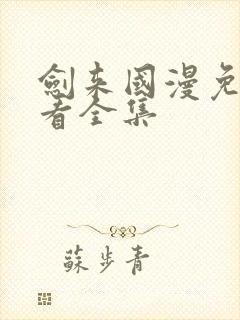 劍来國漫免
看全集
蘇步青